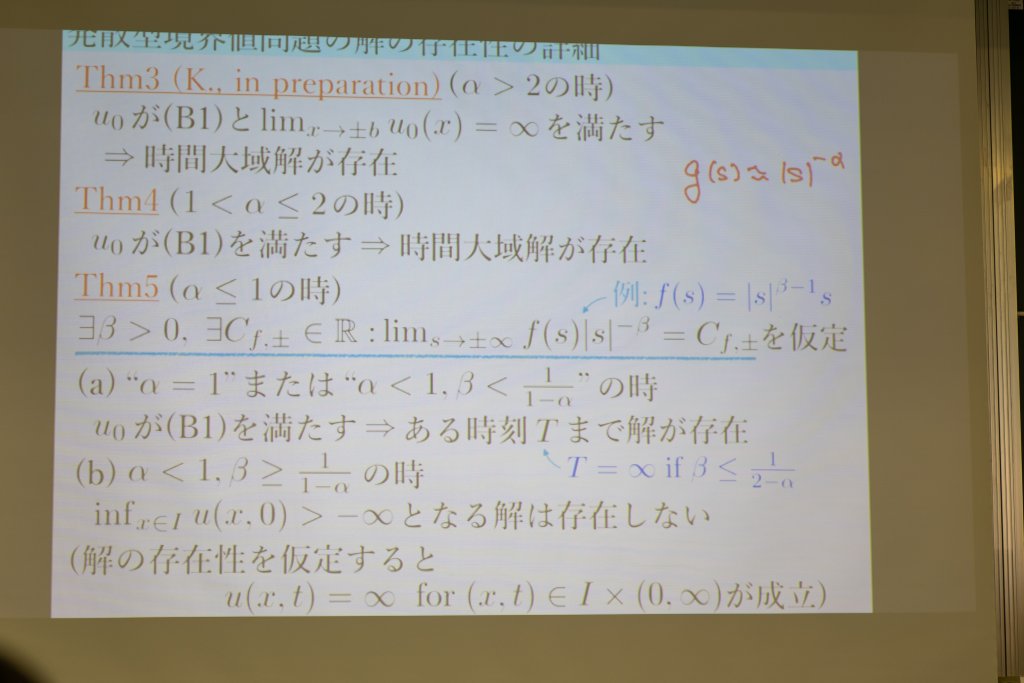 発散型境界値問題の解の存在性の詳細
Thm3 (K., in preparation) (α > 2の時)
u₀ が(B1)と lim_{x→±b} u₀(x) = ∞ を満たす
⇒ 時間大域解が存在
g(s) ≈ |s|^{-α}
Thm4 (1 < α ≤ 2の時)
u₀ が(B1)を満たす ⇒ 時間大域解が存在
Thm5 (α ≤ 1の時)
例: f(s) = |s|^{β−1}s
∃β > 0, ∃C_{f,±} ∈ ℝ : lim_{s→±∞} f(s)|s|^{−β} = C_{f,±}を仮定
(a) “α = 1” または “α < 1, β < \frac{1}{1−α}” の時
u₀ が(B1)を満たす ⇒ ある時刻 T まで解が存在
(b) α < 1, β ≥ \frac{1}{1−α} の時
T = ∞ if β ≤ \frac{1}{2−α}
inf_{x∈I} u(x, 0) > −∞ となる解は存在しない
(解の存在性を仮定すると
u(x, t) = ∞ for (x, t) ∈ I × (0, ∞)が成立)